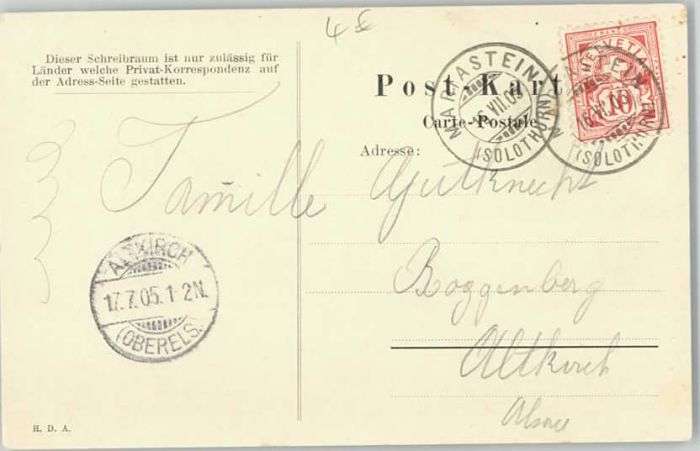 4 SE
Dieser Schreibraum ist nur zulässig für
Länder welche Privat-Korrespondenz auf
der Adress-Seite gestatten.
Post-Karte
Carte-Postale
Adresse:
HELVETIA
10
MARIASTEIN
VII.05
(SOLOTHURN)
(SOLOTHURN)
Familie Gutknecht
Roggenberg
Altkirch
Alsace
ALTKIRCH
17.7.05.1-2N.
(OBERELS.)
H. D. A.